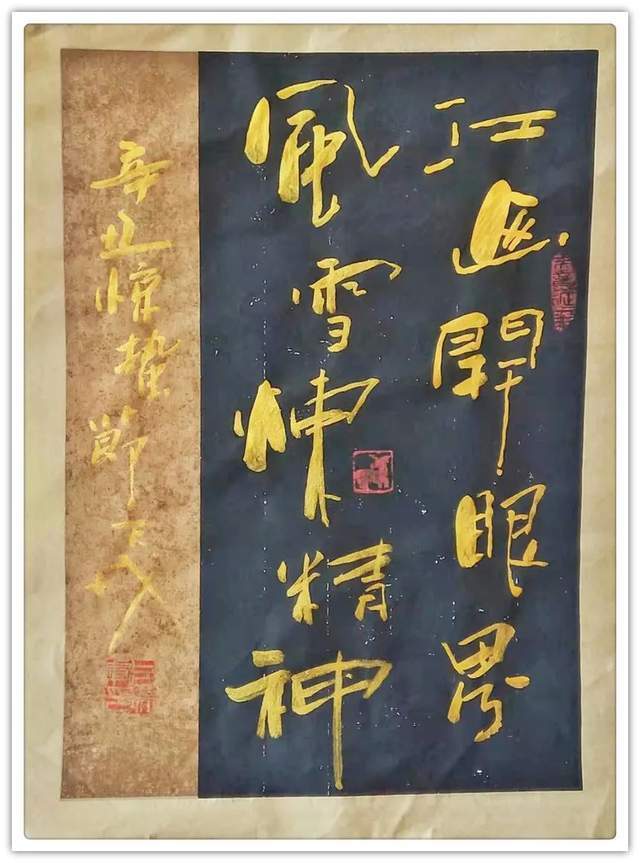 江海開眼界
風雪煉精神
辛丑惊蟄節